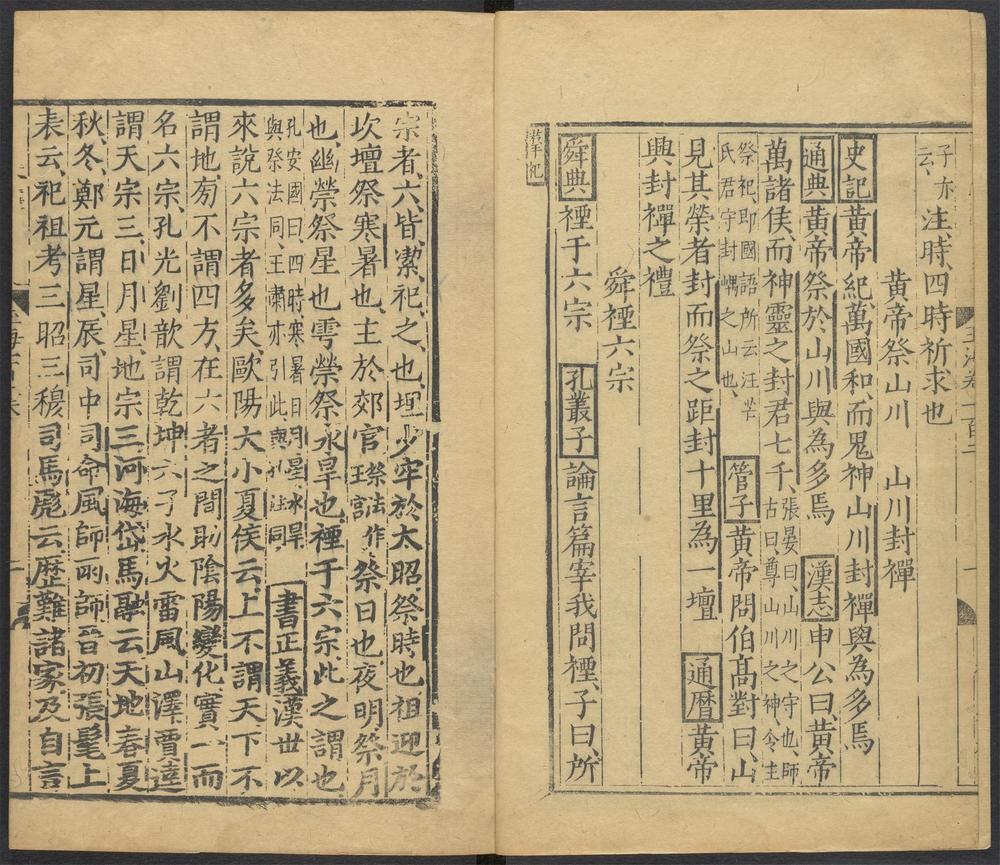 子亦
云
注時四時祈求也
黃帝祭山川 山川封禪
史記黃帝紀萬國和而鬼神山川封禪與為多焉
通典黃帝祭於山川與為多焉 漢志申公曰黃帝
萬諸侯而神靈之封君七千張晏曰山川之守也師
古曰尊山川之神令主
祭祀即國語所云汪芒
氏君守封嵎之山也
管子黃帝問伯高對曰山
見其榮者封而祭之距封十里為一壇 通曆黃帝
興封禪之禮
舜禋六宗
舜典禋于六宗 孔叢子論言篇宰我問禋子曰所
宗者六皆潔祀之也埋少牢於太昭祭時也祖迎於
坎壇祭寒暑也主於郊官祭法作
王宮
祭日也夜明祭月
也幽禜祭星也雩禜祭水旱也禋于六宗此之謂也
孔安國曰四時寒暑日月星水旱
與祭法同王肅亦引此與孔注同
書正義漢世以
來說六宗者多矣歐陽大小夏侯云上不謂天下不
謂地旁不謂四方在六者之間助陰陽變化實一而
名六宗孔光劉歆謂乾坤六子水火雷風山澤賈逵
謂天宗三日月星地宗三河海岱馬融云天地春夏
秋冬鄭元謂星辰司中司命風師雨師晉初張髦上
表云祀祖考三昭三穆司馬彪云歷難諸家及自言